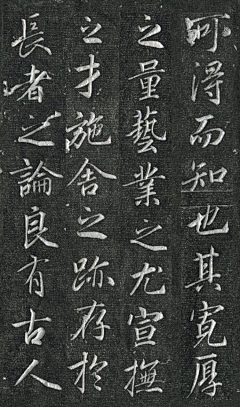 可得而知也其寛厚
之量藝業之尤宣撫
之才施舍之跡存於
長者之論良有古人